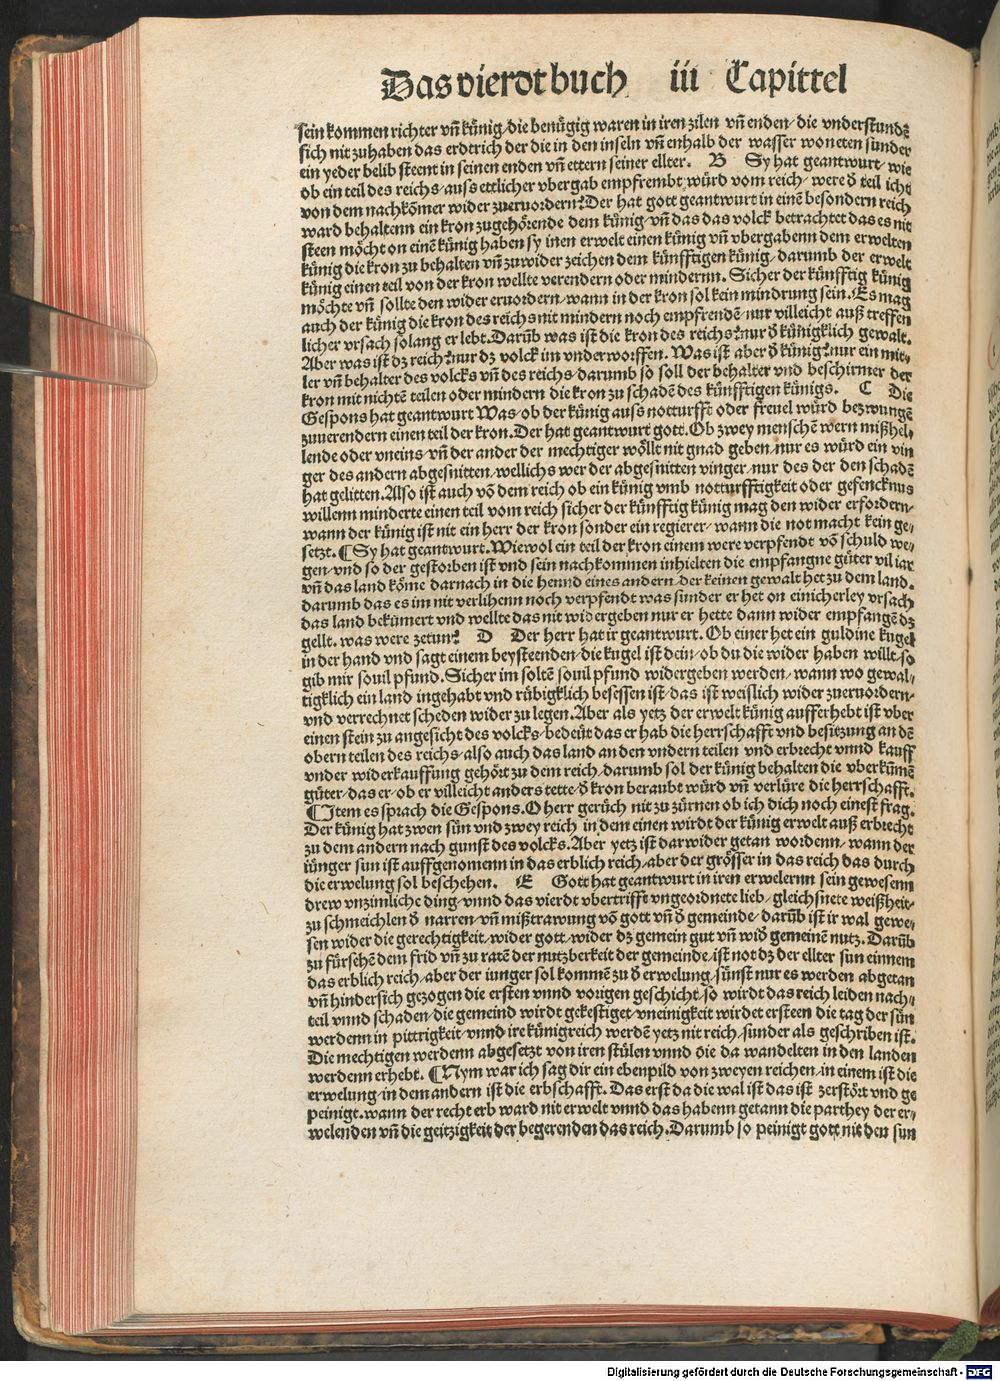 Das vierdt buch iii Capittel
sein kommen richter vñ künig/die benügig waren in iren zilen vñ enden/die vnderstundẽ
sich nit zuhaben das erdtrich der die in den inseln vñ enhalb der wasser woneten sunder
ein yeder belib steent in seinen enden vñ ettern seiner ellter. B Sy hat geantwurt/wie
ob ein teil des reichs/auss ettlicher vbergab empfrembt würd vom reich/were d̕ teil icht
von dem nachkömer wider zueruordern? Der hat gott geantwurt in einẽ besondern reich
ward behaltenn ein kron zugehörende dem künig/vñ das das volck betrachtet das es nit
steen möcht on einẽ künig haben sy inen erwelt einen künig vñ vbergabenn dem erwelten
künig die kron zu behalten vñ zuwider zeichen dem künfftigen künig/darumb der erwelt
künig einen teil von der kron wellte verendern oder mindernn. Sicher der künfftig künig
möchte vñ sollte den wider eruordern/wann in der kron sol kein mindrung sein. Es mag
auch der künig die kron des reichs nit mindern noch empfrendẽ/nur villeicht auß treffen
licher vrsach solang er lebt. Darũb was ist die kron des reichs? nur d̕ künigklich gewalt.
Aber was ist dz reich? nur dz volck im vnderworffen. Was ist aber d̕ künig? nur ein mit/
ler vñ behalter des volcks vñ des reichs/darumb so soll der behalter vnd beschirmer der
kron mit nichtẽ teilen oder mindern die kron zu schadẽ des künfftigen künigs. C Die
Gespons hat geantwurt Was/ob der künig auss notturfft oder freuel würd bezwungẽ
zuuerendern einen teil der kron. Der hat geantwurt gott. Ob zwey menschẽ wern mißhel/
lende oder vneins/vñ der ander der mechtiger wöllt nit gnad geben/nur es würd ein vin
ger des andern abgesnitten/wellichs wer der abgesnitten vinger/nur des der den schadẽ
hat gelitten. Also ist auch võ dem reich ob ein künig vmb notturfftigkeit oder gefencknus
willenn minderte einen teil vom reich sicher der künfftig künig mag den wider erfordern/
wann der künig ist nit ein herr der kron sonder ein regierer/wann die not macht kein ge/
setzt. ¶ Sy hat geantwurt. Wiewol ein teil der kron einem were verpfendt võ schuld we/
gen/vnd so der gestorben ist vnd sein nachkommen inhielten die empfangne güter vil iar
vñ das land köme darnach in die hennd eines andern/der keinen gewalt het zu dem land.
darumb das es im nit verlihenn noch verpfendt was sunder er het on einicherley vrsach
das land bekümert vnd wellte das nit widergeben nur er hette dann wider empfangẽ dz
gellt. was were zetun? D Der herr hat ir geantwurt. Ob einer het ein guldine kugel
in der hand vnd sagt einem beysteenden/die kugel ist dein/ob du die wider haben willt/so
gib mir souil pfund. Sicher im soltẽ souil pfund widergeben werden/wann wo gewal/
tigklich ein land ingehabt vnd rübigklich besessen ist/das ist weislich wider zueruordern/
vnd verrechnet scheden wider zu legen. Aber als yetz der erwelt künig aufferhebt ist vber
einen stein zu angesicht des volcks/bedeüt das er hab die herrschafft vnd besitzung an dẽ
obern teilen des reichs/also auch das land an den vndern teilen vnd erbrecht vnnd kauff
vnder widerkauffung gehört zu dem reich/darumb sol der künig behalten die vberkũmẽ
güter/das er/ob er villeicht anders tette/d̕ kron beraubt würd vñ verlüre die herrschafft.
¶ Item es sprach die Gespons. O herr gerüch nit zu zürnen ob ich dich noch einest frag.
Der künig hat zwen sün vnd zwey reich in dem einen wirdt der künig erwelt auß erbrecht
zu dem andern nach gunst des volcks. Aber yetz ist darwider getan wordenn/wann der
iünger sun ist auffgenomenn in das erblich reich/aber der grösser in das reich das durch
die erwelung sol beschehen. E Gott hat geantwurt in iren erwelernn sein gewesenn
drew vnzimliche ding/vnnd das vierdt vbertriffe vngeordnete lieb/gleichsnete weißheit/
zu schmeichlen d̕ narren/vñ mißtrawung võ gott vñ d̕ gemeinde/darũb ist ir wal gewe/
sen wider die gerechtigkeit/wider gott/wider dz gemein gut vñ wid̕ gemeinẽ nutz. Darũb
zu fürsehẽ dem frid vñ zu ratẽ der nutzberkeit der gemeinde/ist not dz der ellter sun einnem
das erblich reich/aber der iunger sol kommẽ zu d̕ erwelung/sünst nur es werden abgetan
vñ hindersich gezogen die ersten vnnd vorigen geschicht/so wirdt das reich leiden nach/
teil vnnd schaden/die gemeind wirdt gekestiget/vneinigkeit wirdet ersteen die tag der sün
werdenn in pittrigkeit/vnnd ire künigreich werdẽ yetz nit reich/sunder als geschriben ist.
Die mechtigen werdenn abgesetzt von iren stülen vnnd die da wandelten in den landen
werdenn erhebt. ¶ Nym war ich sag dir ein ebenpild von zweyen reichen/in einem ist die
erwelung/in dem andern ist die erbschafft. Das erst da die wal ist das ist zerstört vnd ge
peinigt. wann der recht erb ward nit erwelt vnnd das habenn getann die parthey der er/
welenden vñ die geitzigkeit der begerenden das reich. Darumb so peinigt gott nit den sun
Digitalisierung gefördert durch die Deutsche Forschungsgemeinschaft - DFG